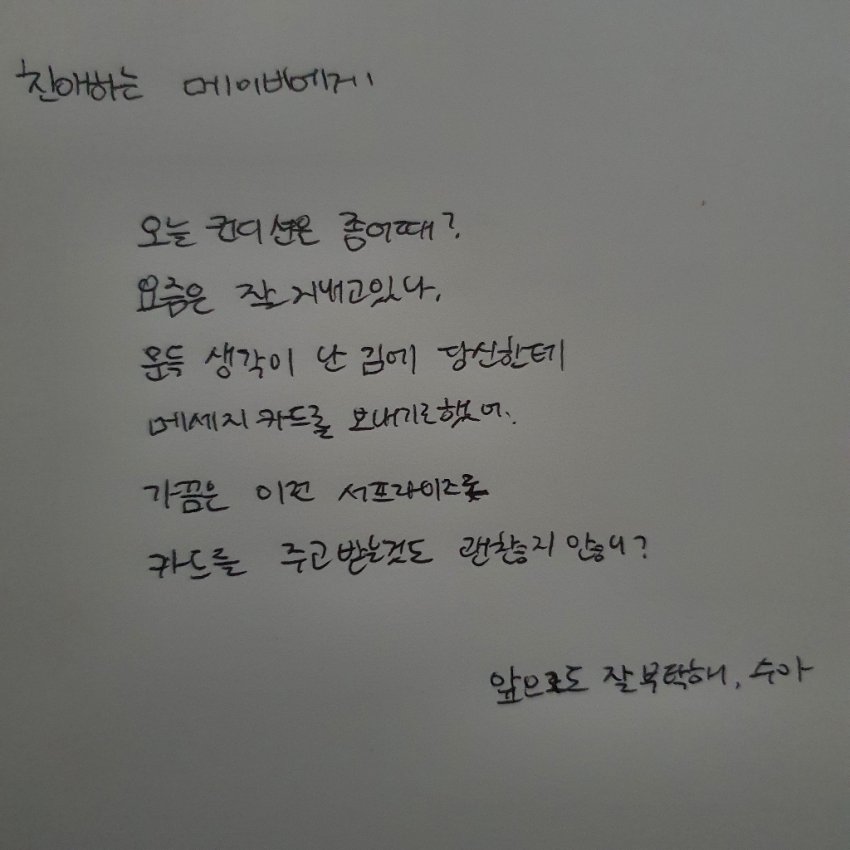 친애하는 메이버에게
오늘 컨디션은 좀어때?
요즘은 잘 지내고있다.
문득 생각이 난 김에 당신한테
메세지 카드를 보내기로했어.
가끔은 이런 서프라이즈로
카드를 주고받는것도 괜찮지 않니?
앞으로도 잘 부탁해, 수아